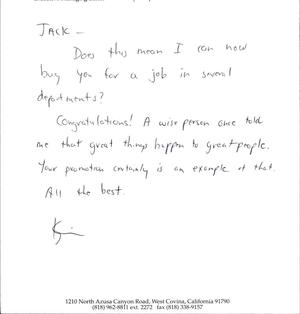 JACK —
Does this mean I can now
buy you for a job in several
departments?
Congratulations! A wise person once told
me that great things happen to great people.
Your promotion certainly is an example of that.
All the best.
1210 North Azusa Canyon Road, West Covina, California 91790
(818) 962-8811 ext. 2272 fax (818) 338-9157